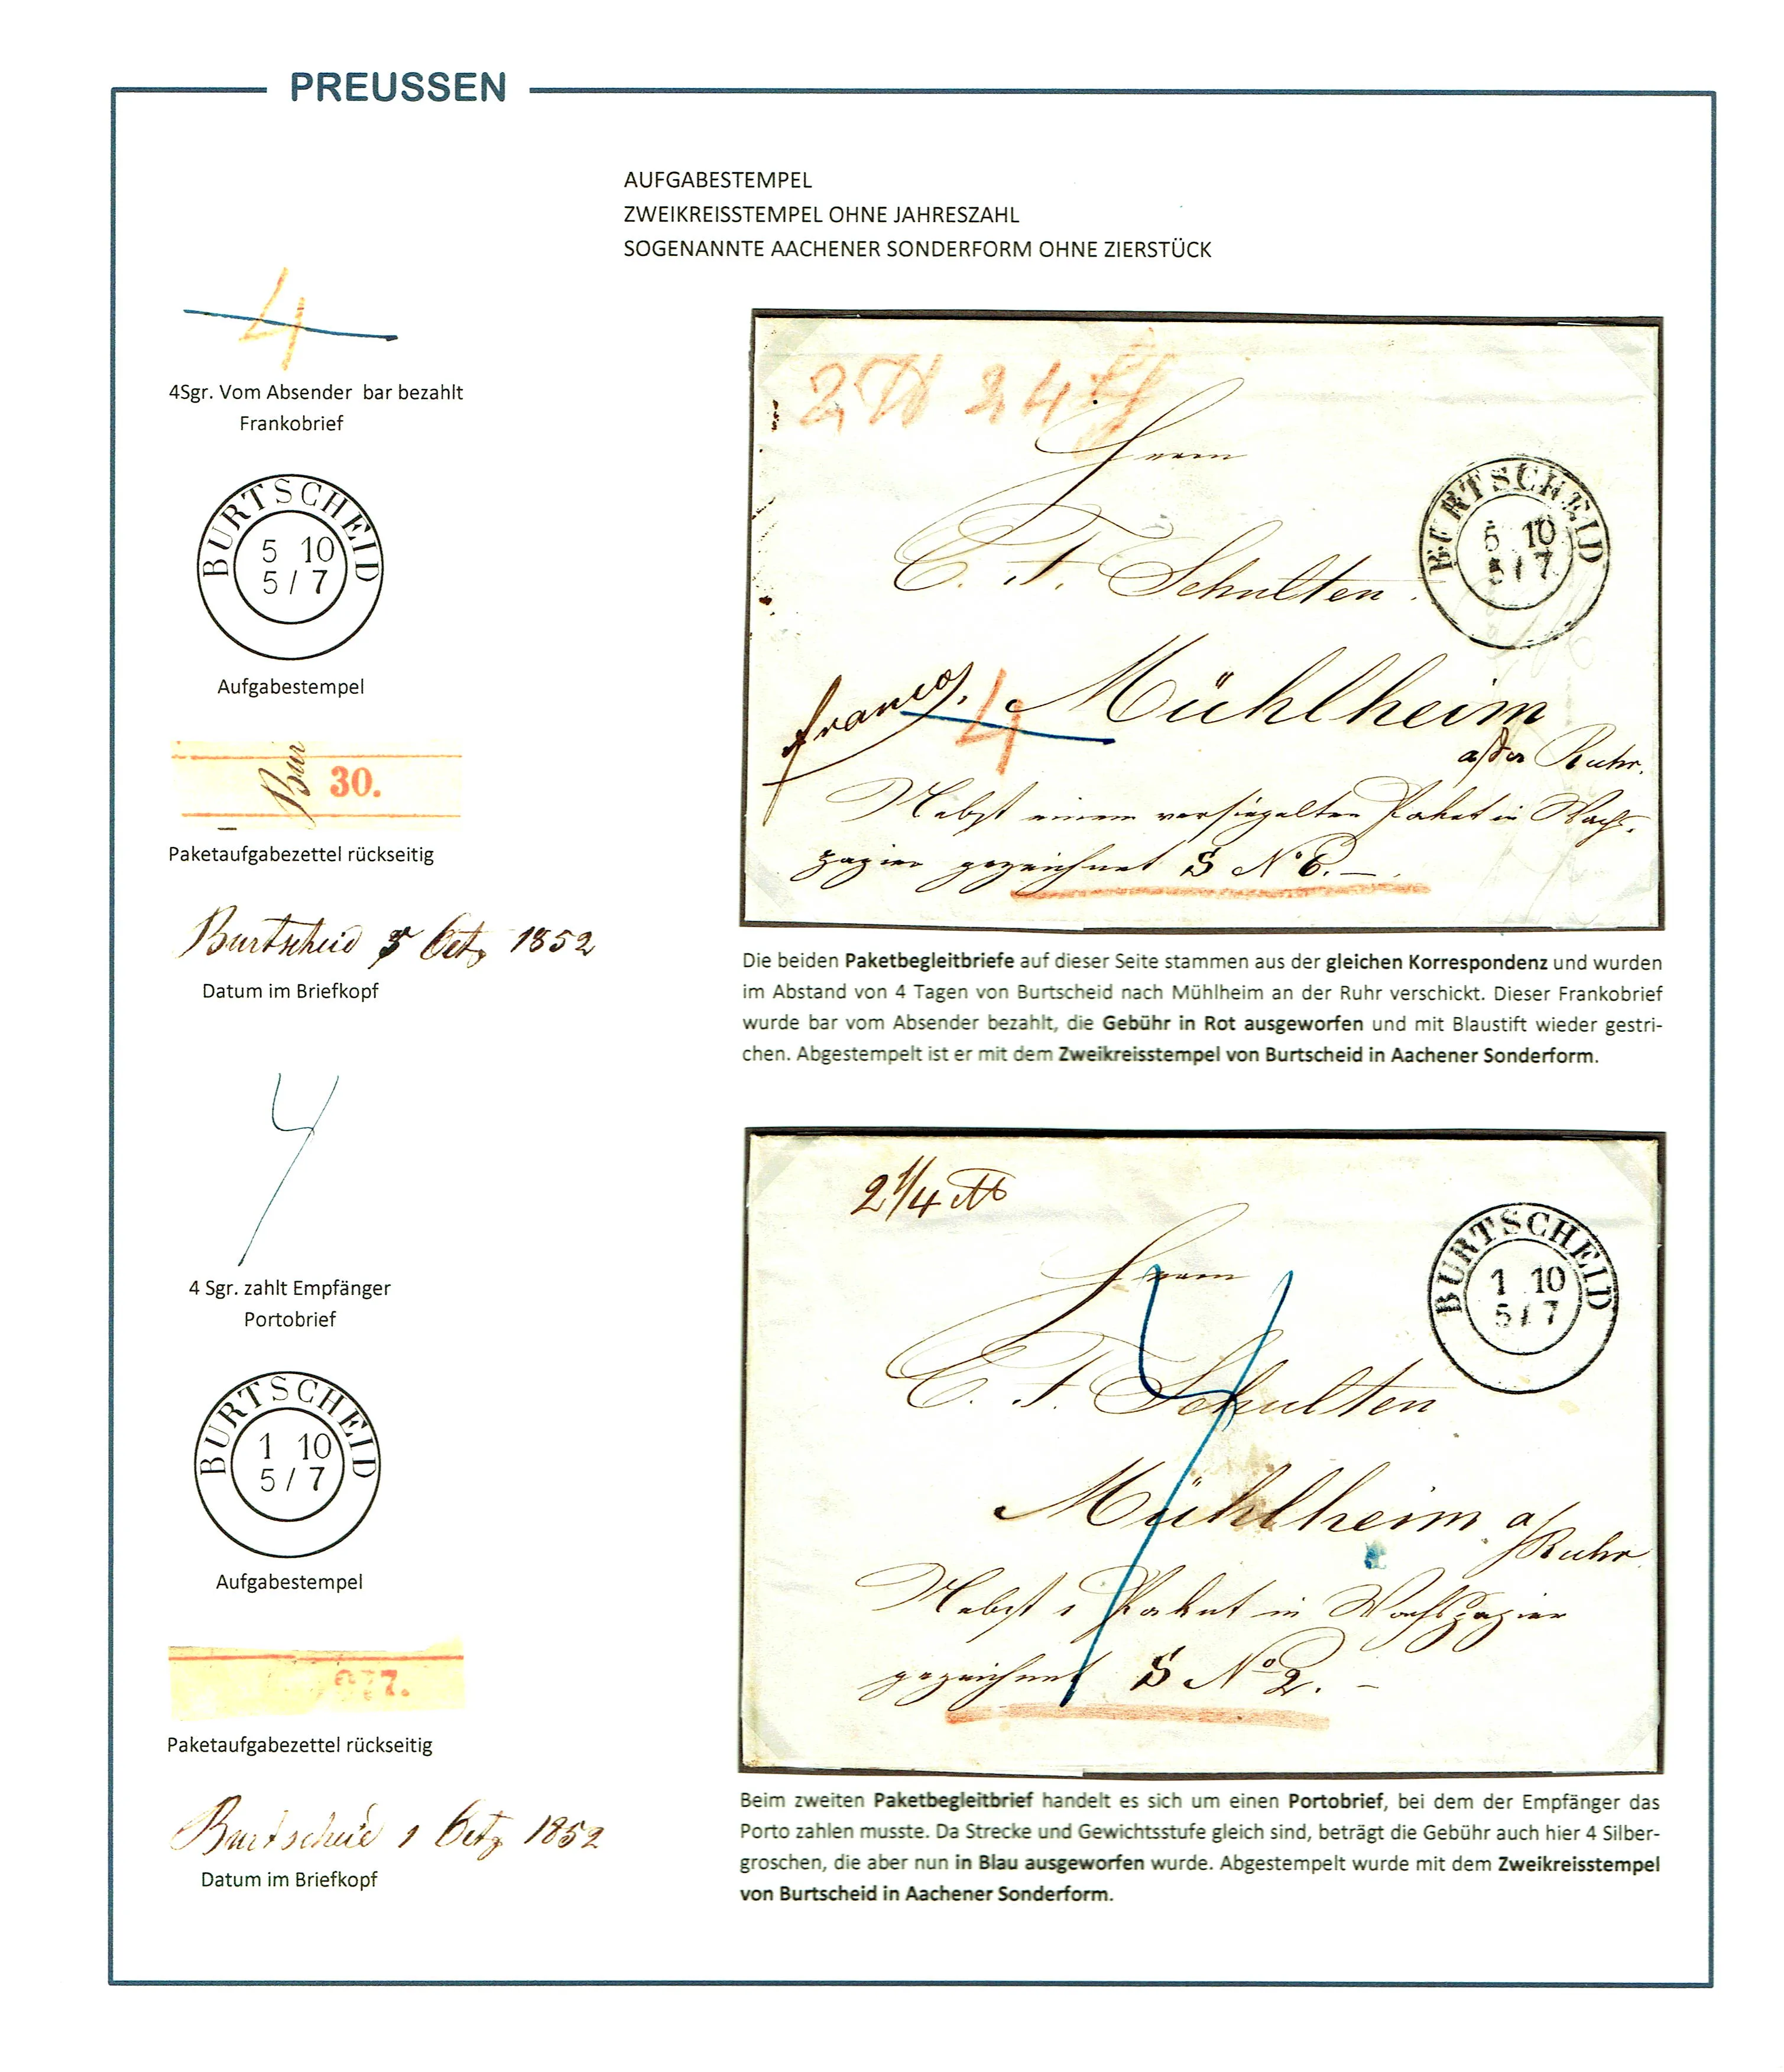 PREUSSEN
AUFGABESTEMPEL
ZWEIKREISSTEMPEL OHNE JAHRESZAHL
SOGENANNTE AACHENER SONDERFORM OHNE ZIERSTÜCK
4
4Sgr. Vom Absender bar bezahlt
Frankobrief
BURTSCHEID
5 10
5 / 7
Aufgabestempel
Bur 30.
Paketaufgabezettel rückseitig
Burtscheid 5 Oct 1852
Datum im Briefkopf
Herrn
C. F. Schulten.
BURTSCHEID
5 10
5 / 7
franco. 4 Mühlheim
a/der Ruhr.
Nebst einem versiegelten Paket in Wachs-
papier gezeichnet S No 6.
Die beiden Paketbegleitbriefe auf dieser Seite stammen aus der gleichen Korrespondenz und wurden
im Abstand von 4 Tagen von Burtscheid nach Mühlheim an der Ruhr verschickt. Dieser Frankobrief
wurde bar vom Absender bezahlt, die Gebühr in Rot ausgeworfen und mit Blaustift wieder gestri-
chen. Abgestempelt ist er mit dem Zweikreisstempel von Burtscheid in Aachener Sonderform.
4
4 Sgr. zahlt Empfänger
Portobrief
BURTSCHEID
1 10
5 / 7
Aufgabestempel
Paketaufgabezettel rückseitig
Burtscheid 1 Oct 1852
Datum im Briefkopf
2 1/4 ℔
Herrn
C. F. Schulten
BURTSCHEID
1 10
5 / 7
4
Mühlheim a/
Ruhr
Nebst 1 Paket in Wachspapier
gezeichnet S No 2. –
Beim zweiten Paketbegleitbrief handelt es sich um einen Portobrief, bei dem der Empfänger das
Porto zahlen musste. Da Strecke und Gewichtsstufe gleich sind, beträgt die Gebühr auch hier 4 Silber-
groschen, die aber nun in Blau ausgeworfen wurde. Abgestempelt wurde mit dem Zweikreisstempel
von Burtscheid in Aachener Sonderform.